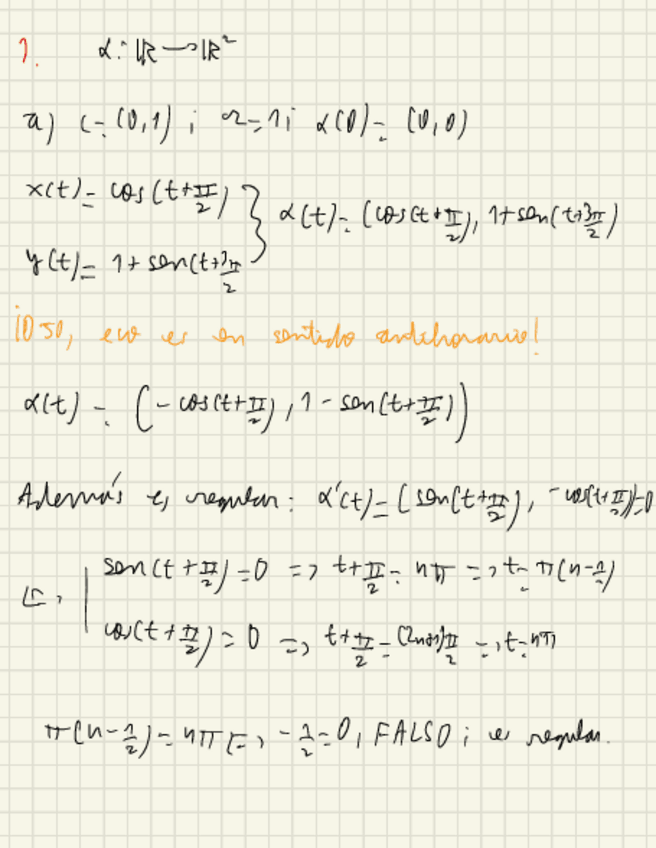 1. α: ℝ → ℝ²
a) C=(0,1) ; r=1; α(0)=(0,0)
x(t)= cos(t+π/2) } α(t)=(cos(t+π/2), 1+sen(t+3π/2))
y(t)= 1+sen(t+3π/2)
¡OJO, eso es en sentido antihorario!
α(t) = (-cos(t+π/2), 1-sen(t+π/2))
Además es regular: α'(t)=(sen(t+π/2), -cos(t+π/2))=0
⇔ | sen(t+π/2)=0 => t+π/2=nπ => t=π(n-1/2)
cos(t+π/2)=0 => t+π/2=(2n+1)π/2 => t=nπ
π(n-1/2)=nπ ⇔ -1/2=0, FALSO; es regular.